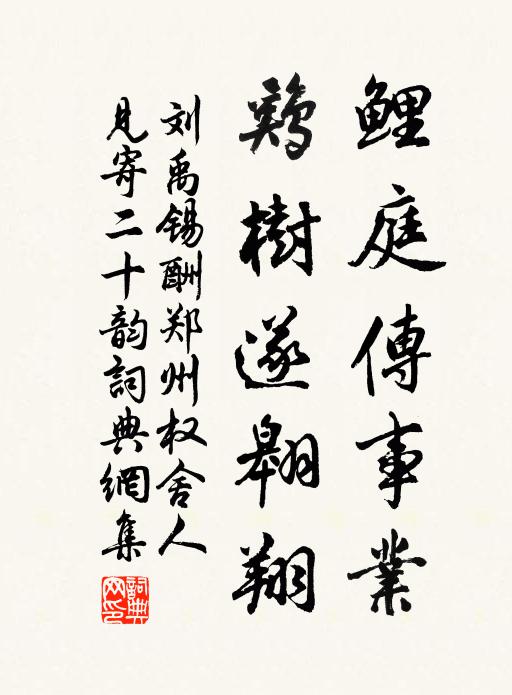 鯉庭傳事業
鷄樹遂翱翔
刘禹锡酬郑州权舍人
見寄二十韵詞典網集
詞典网印